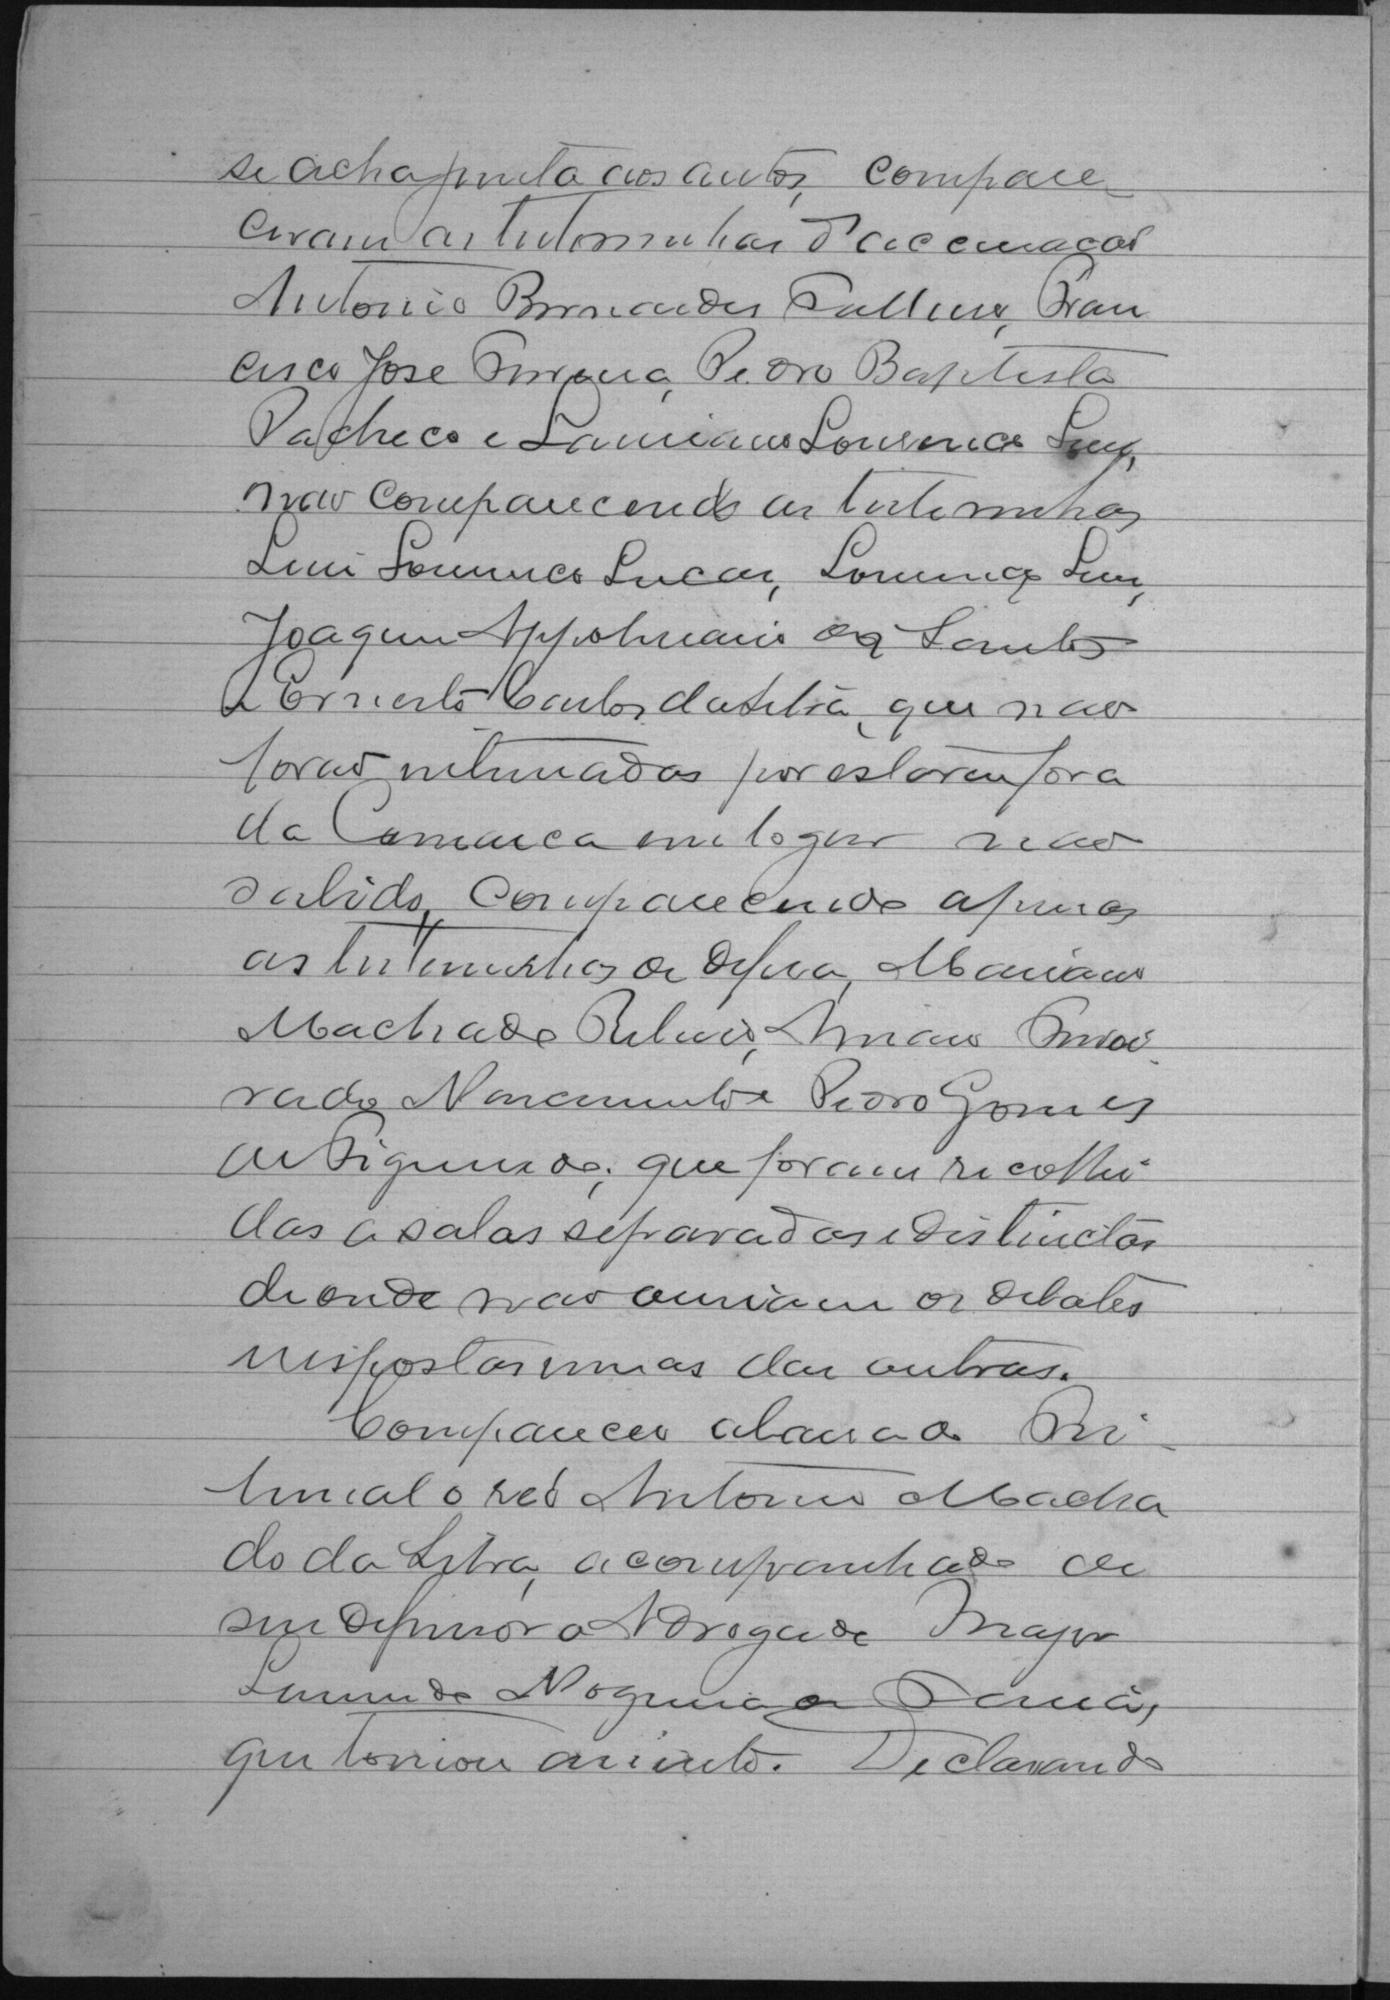 se acha junta aos autos, compare
ceram as testemunhas d'accusação
Antonio Bernardes Fran
cisco José Pedro Baptista
Pacheco e Lourenço
não comparecendo as testemunhas
Luis Lourenço Lucas, Lourenço Luis,
Joaquim Appolinario dos Santos
e Ernesto Carlos da Silva, que não
forão intimadas por estarem fora
da Comarca em logar não
sabido, comparecendo apenas
as testemunhas de defesa, Mariano
Machado Ribeiro,
Nascimento e Pedro Gomes
de Figueredo, que foram recolhi
das a salas separadas e distinctas
de onde não ouviam os debates
respostas umas das outras.
Compareceu a barra do Tri
bunal o reo Antonio Macha
do da Silva, acompanhado de
seu defensor o Advogado Major
Nogueira de
que tomou assento. Declarando